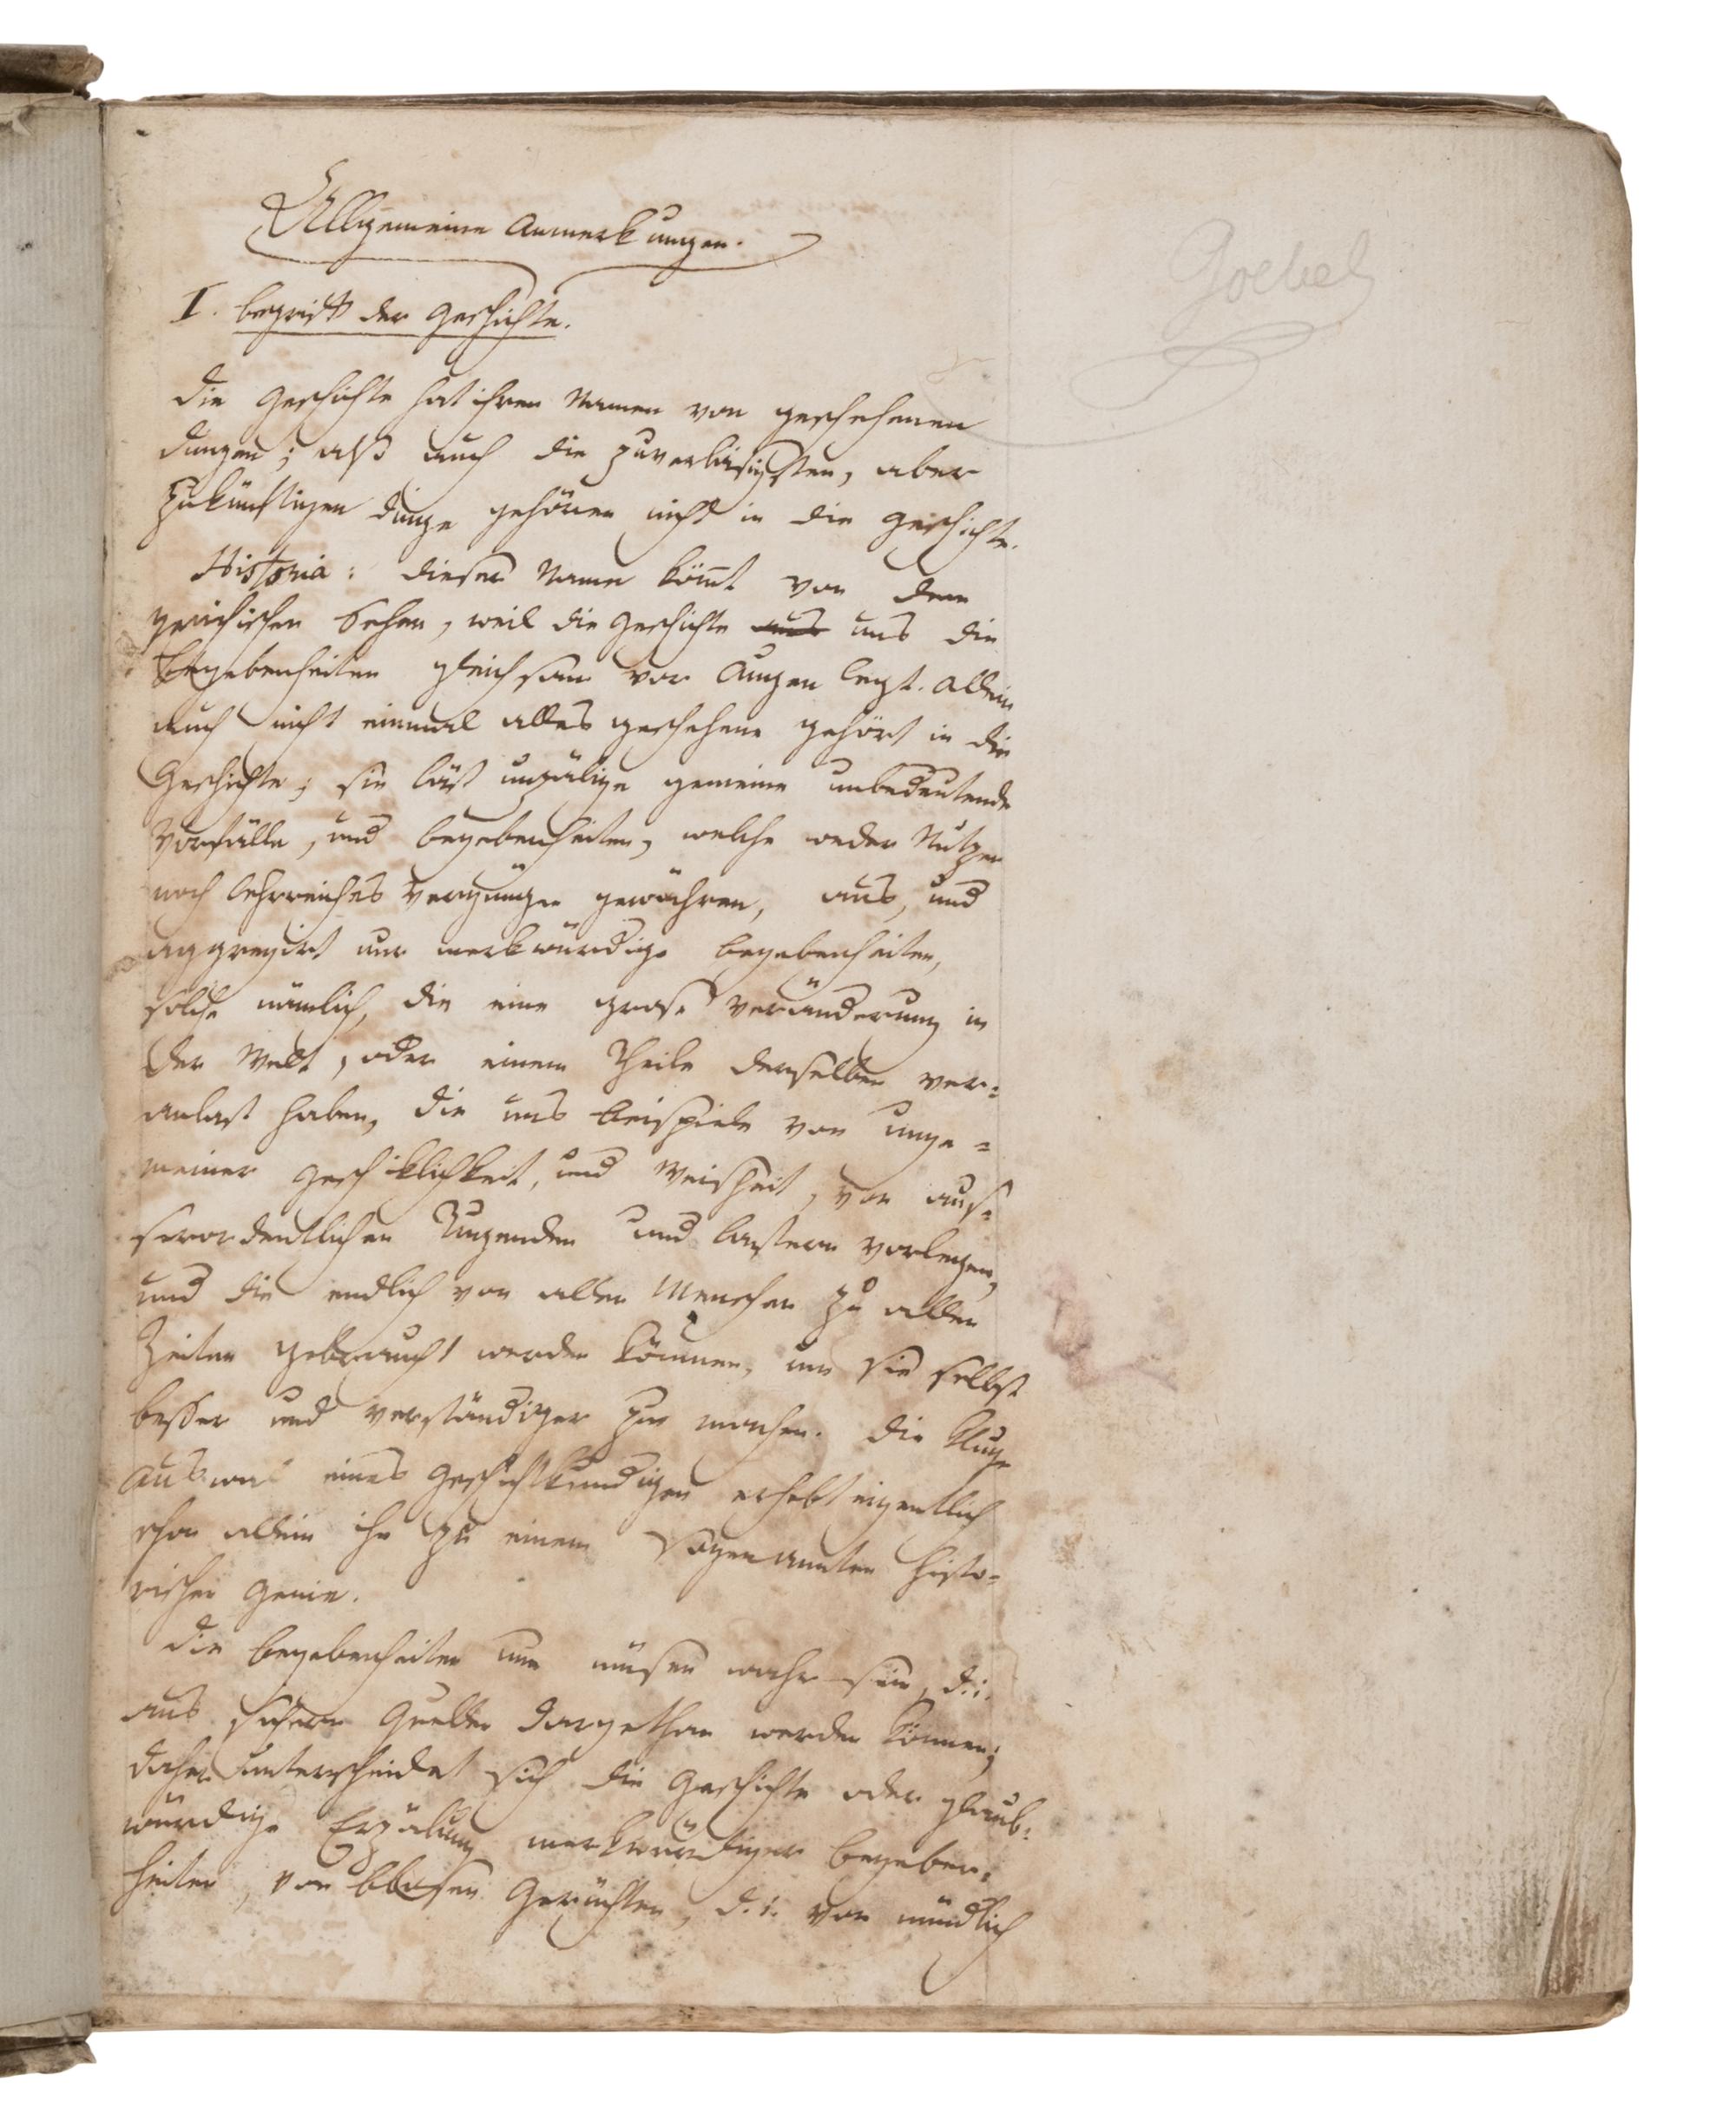 Allgemeine Anmerkungen.
Goebel
I. begriff der Geschichte.
Die Geschichte hat ihren Namen von geschehenen
dingen; alß auch die zuverläsigsten, aber
zukünftigen dinge gehören nicht in die Geschichte.
Historia: dieser Name kömt von dem
grichischen Sehen, weil die Geschichte aus uns die
Begebenheiten gleichsam vor Augen legt. Allein
auch nicht einmal alles geschehene gehört in die
Geschichte; sie läst unzälige gemeine unbedeutende
Vorfälle, und begebenheiten, welche weder Nutzen
noch lehrreiches Vergnügen gewähren, aus, und
aggregirt nur merkwürdige begebenheiten,
solche nämlich, die eine grose Veränderung in
der Welt, oder einem Theile derselben ver=
anlast haben, die uns beispiele von unge=
meiner Geschiklichkeit, und Weisheit, von aus=
serordentlichen Tugenden und lastern vorlegen,
und die endlich von allen Menschen zu allen
Zeiten gebraucht werden können, um sie selbst
besser und verständiger zu machen. Die kluge
Auswal eines Geschichtkundigen erhebt eigentlich
schon allein ihn zu einem sogenannten histo=
rischen Genie.
Die begebenheiten nun müsen wahr sein, d.i.
aus sichern Quellen dargethan werden können;
daher unterscheidet sich die Geschichte oder glaub=
würdige Erzälung merkwürdiger begeben=
heiten, von blosen Gerüchten, d.i. von mündlich